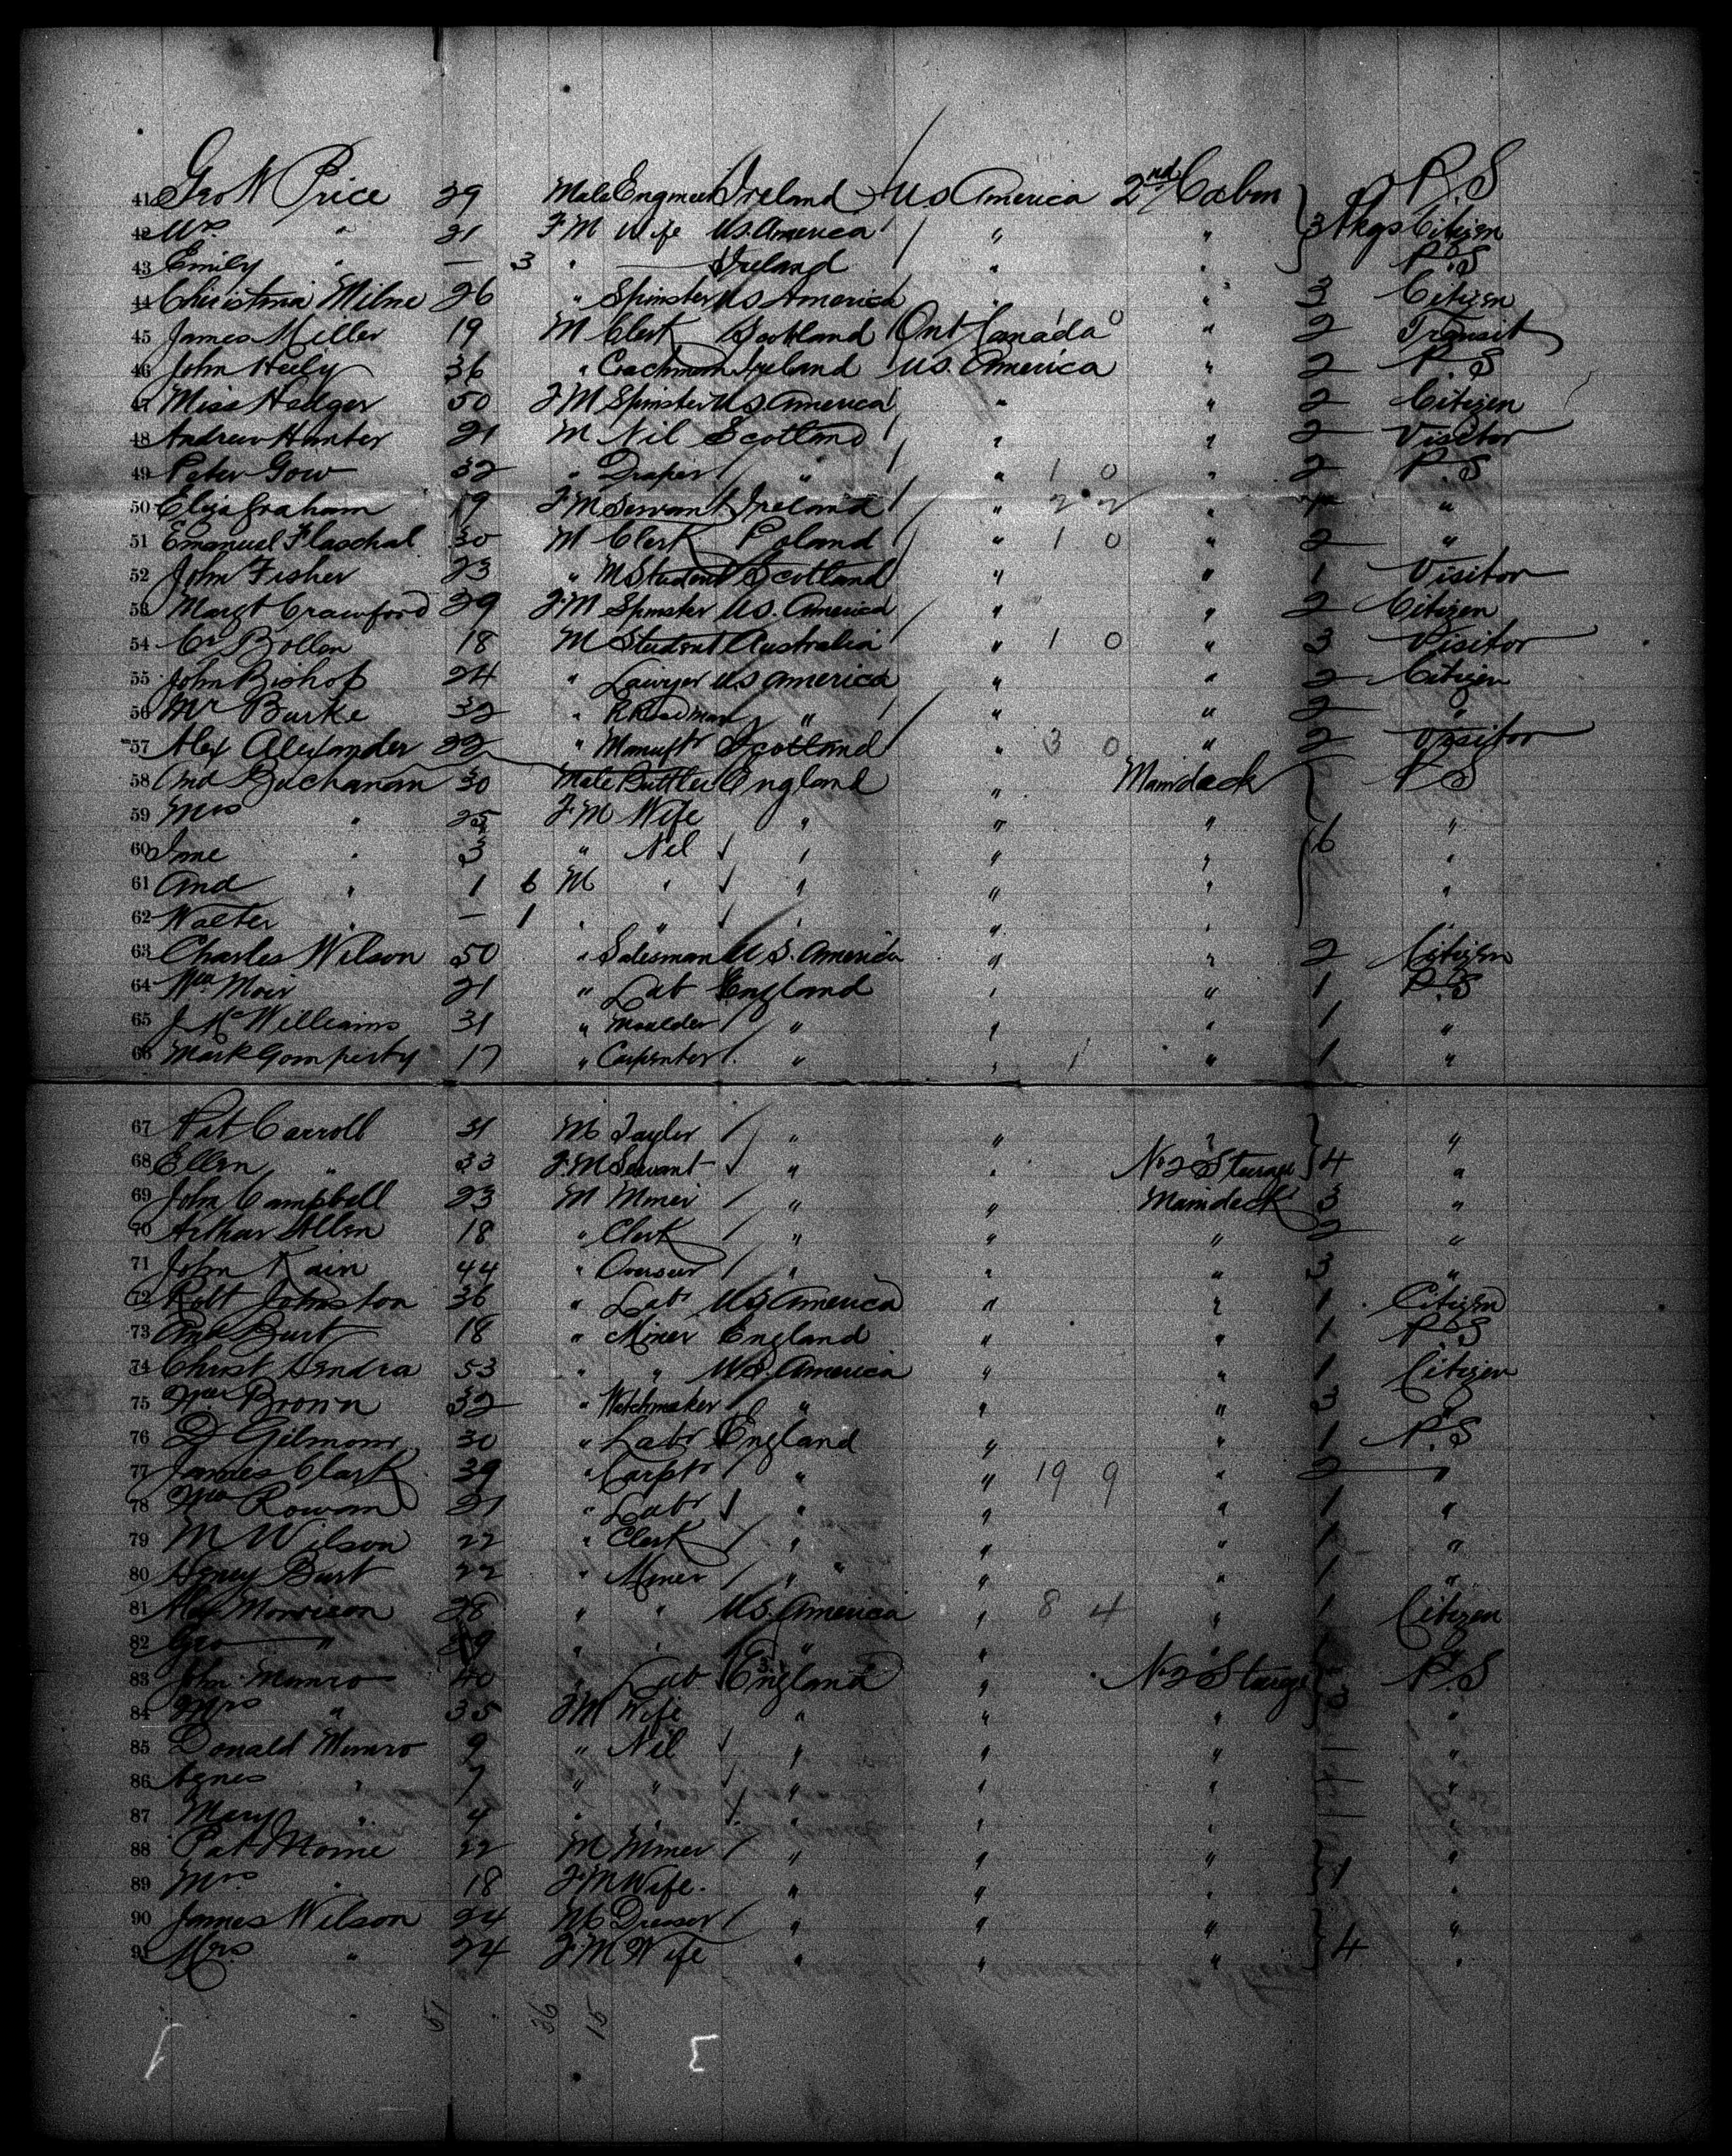 41 Geo W Price 39 Male Engineer Ireland US America 2nd Cabin 3 Pkgs P.S
42 Mrs " 31 FM Wife US. America " " Citizen
43 Emily " — 3 " — Ireland " " P.S
44 Christina Milne 26 " Spinster US America " " 3 Citizen
45 James Miller 19 M Clerk Scotland Ont Canada " 2 Transit
46 John Heily 36 " Coachman Ireland US. America " 2 P.S
47 Miss Hedger 50 FM Spinster US America " " 2 Citizen
48 Andrew Hunter 21 M Nil Scotland " " 2 Visitor
49 Peter Gow 32 " Draper " " 1 0 " 2 P.S
50 Eliza Graham 19 FM Servant Ireland " 2 2 " "
51 Emanuel Flaschal 30 M Clerk Poland " 1 0 " 2 "
52 John Fisher 23 " M Student Scotland " " 1 Visitor
53 Margt Crawford 39 FM Spinster US. America " " 2 Citizen
54 Bollen 18 M Student Australia " 1 0 " 3 Visitor
55 John Bishop 24 " Lawyer US America " " 2 Citizen
56 Mr Burke 32 " " " " 2 "
57 Alex Alexander 22 " Manuftr Scotland " 3 0 " 2 Visitor
58 And Buchanan 30 Male Buttler England " Maindeck P S
59 Mrs " 25 FM Wife " " " 6 "
60 " 3 " Nil " " " "
61 And " 1 6 M " " " " "
62 Walter " — 1 " " " " "
63 Charles Wilson 50 " Salesman U S. America " " 2 Citizen
64 Wm Moir 21 " Lab England " " 1 P.S
65 J McWilliams 31 " Moulder " " " 1 "
66 Mark Gomperty 17 " Carpenter " " 1 " 1 "
67 Pat Carroll 31 M Tayler " " " "
68 Ellen " 33 FM Servant " " No 2 Steerage 4 "
69 John Campbell 23 M Miner " " Maindeck 3 "
70 Arthur Allen 18 " Clerk " " " 2 "
71 John Kain 44 " Overseer " " " 3 "
72 Robt Johnston 36 " Labr US America " " 1 Citizen
73 And Burt 18 " Miner England " " 1 P.S
74 Christ Hendra 53 " " US. America " " 1 Citizen
75 Wm Brown 32 " Watchmaker " " " 3 "
76 D Gilmour 30 " Labr England " " 1 P.S
77 James Clark 39 " Carptr " " 19 9 " 2 "
78 Wm Rowan 21 " Labr " " " 1 "
79 M Wilson 22 " Clerk " " " 1 "
80 Henry Burt 22 " Miner " " " " 1 "
81 Alex Morrison 28 " " US. America " 8 4 " 1 Citizen
82 Geo " " " " " " 1 "
83 John Munro 40 " Lab England " No 2 Steerage P.S
84 Mrs " 35 FM Wife " " " 3 "
85 Donald Munro 9 " Nil " " " "
86 Agnes " 7 " " " " " "
87 Mary " 4 " " " " " "
88 Pat 22 M Miner " " " "
89 Mrs " 18 FM Wife. " " " 1 "
90 James Wilson 24 M " " " "
91 Mrs " 24 FM Wife " " " 4 "
51 36 15